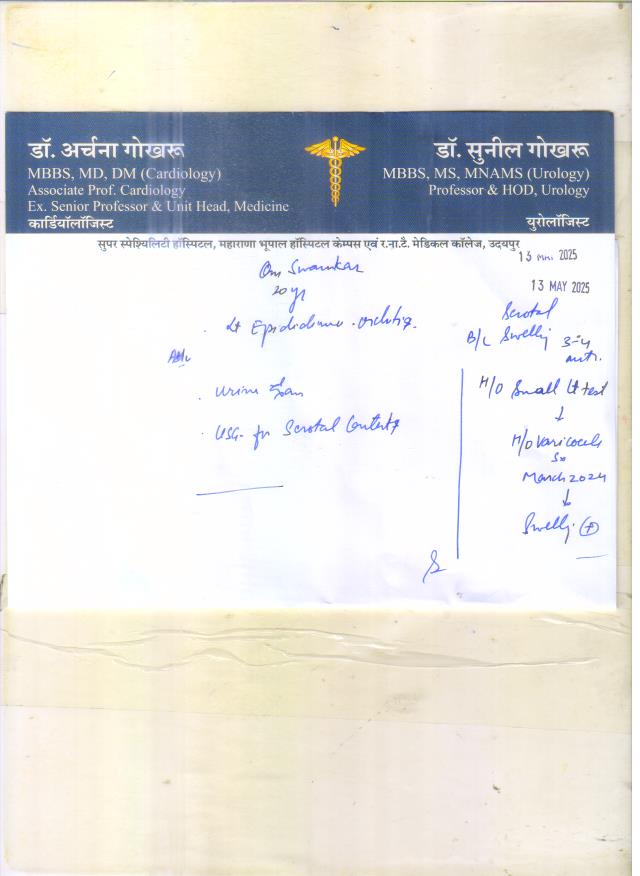 डॉ. अर्चना गोखरू
MBBS, MD, DM (Cardiology)
Associate Prof. Cardiology
Ex. Senior Professor & Unit Head, Medicine
कार्डियॉलॉजिस्ट
डॉ. सुनील गोखरू
MBBS, MS, MNAMS (Urology)
Professor & HOD, Urology
युरोलॉजिस्ट
सुपर स्पेशियलिटी हॉस्पिटल, महाराणा भूपाल हॉस्पिटल केम्पस एवं र.ना.टै. मेडिकल कॉलेज, उदयपुर
13 MAY 2025
13 MAY 2025
Om Swarnkar
20 yr
Lt
Urine
USG for Scrotal Contents
Scrotal
B/L Swelling 3-4
H/O Small Lt test
↓
H/O Varicocele
Sx
March 2024
↓
Swelling (+)